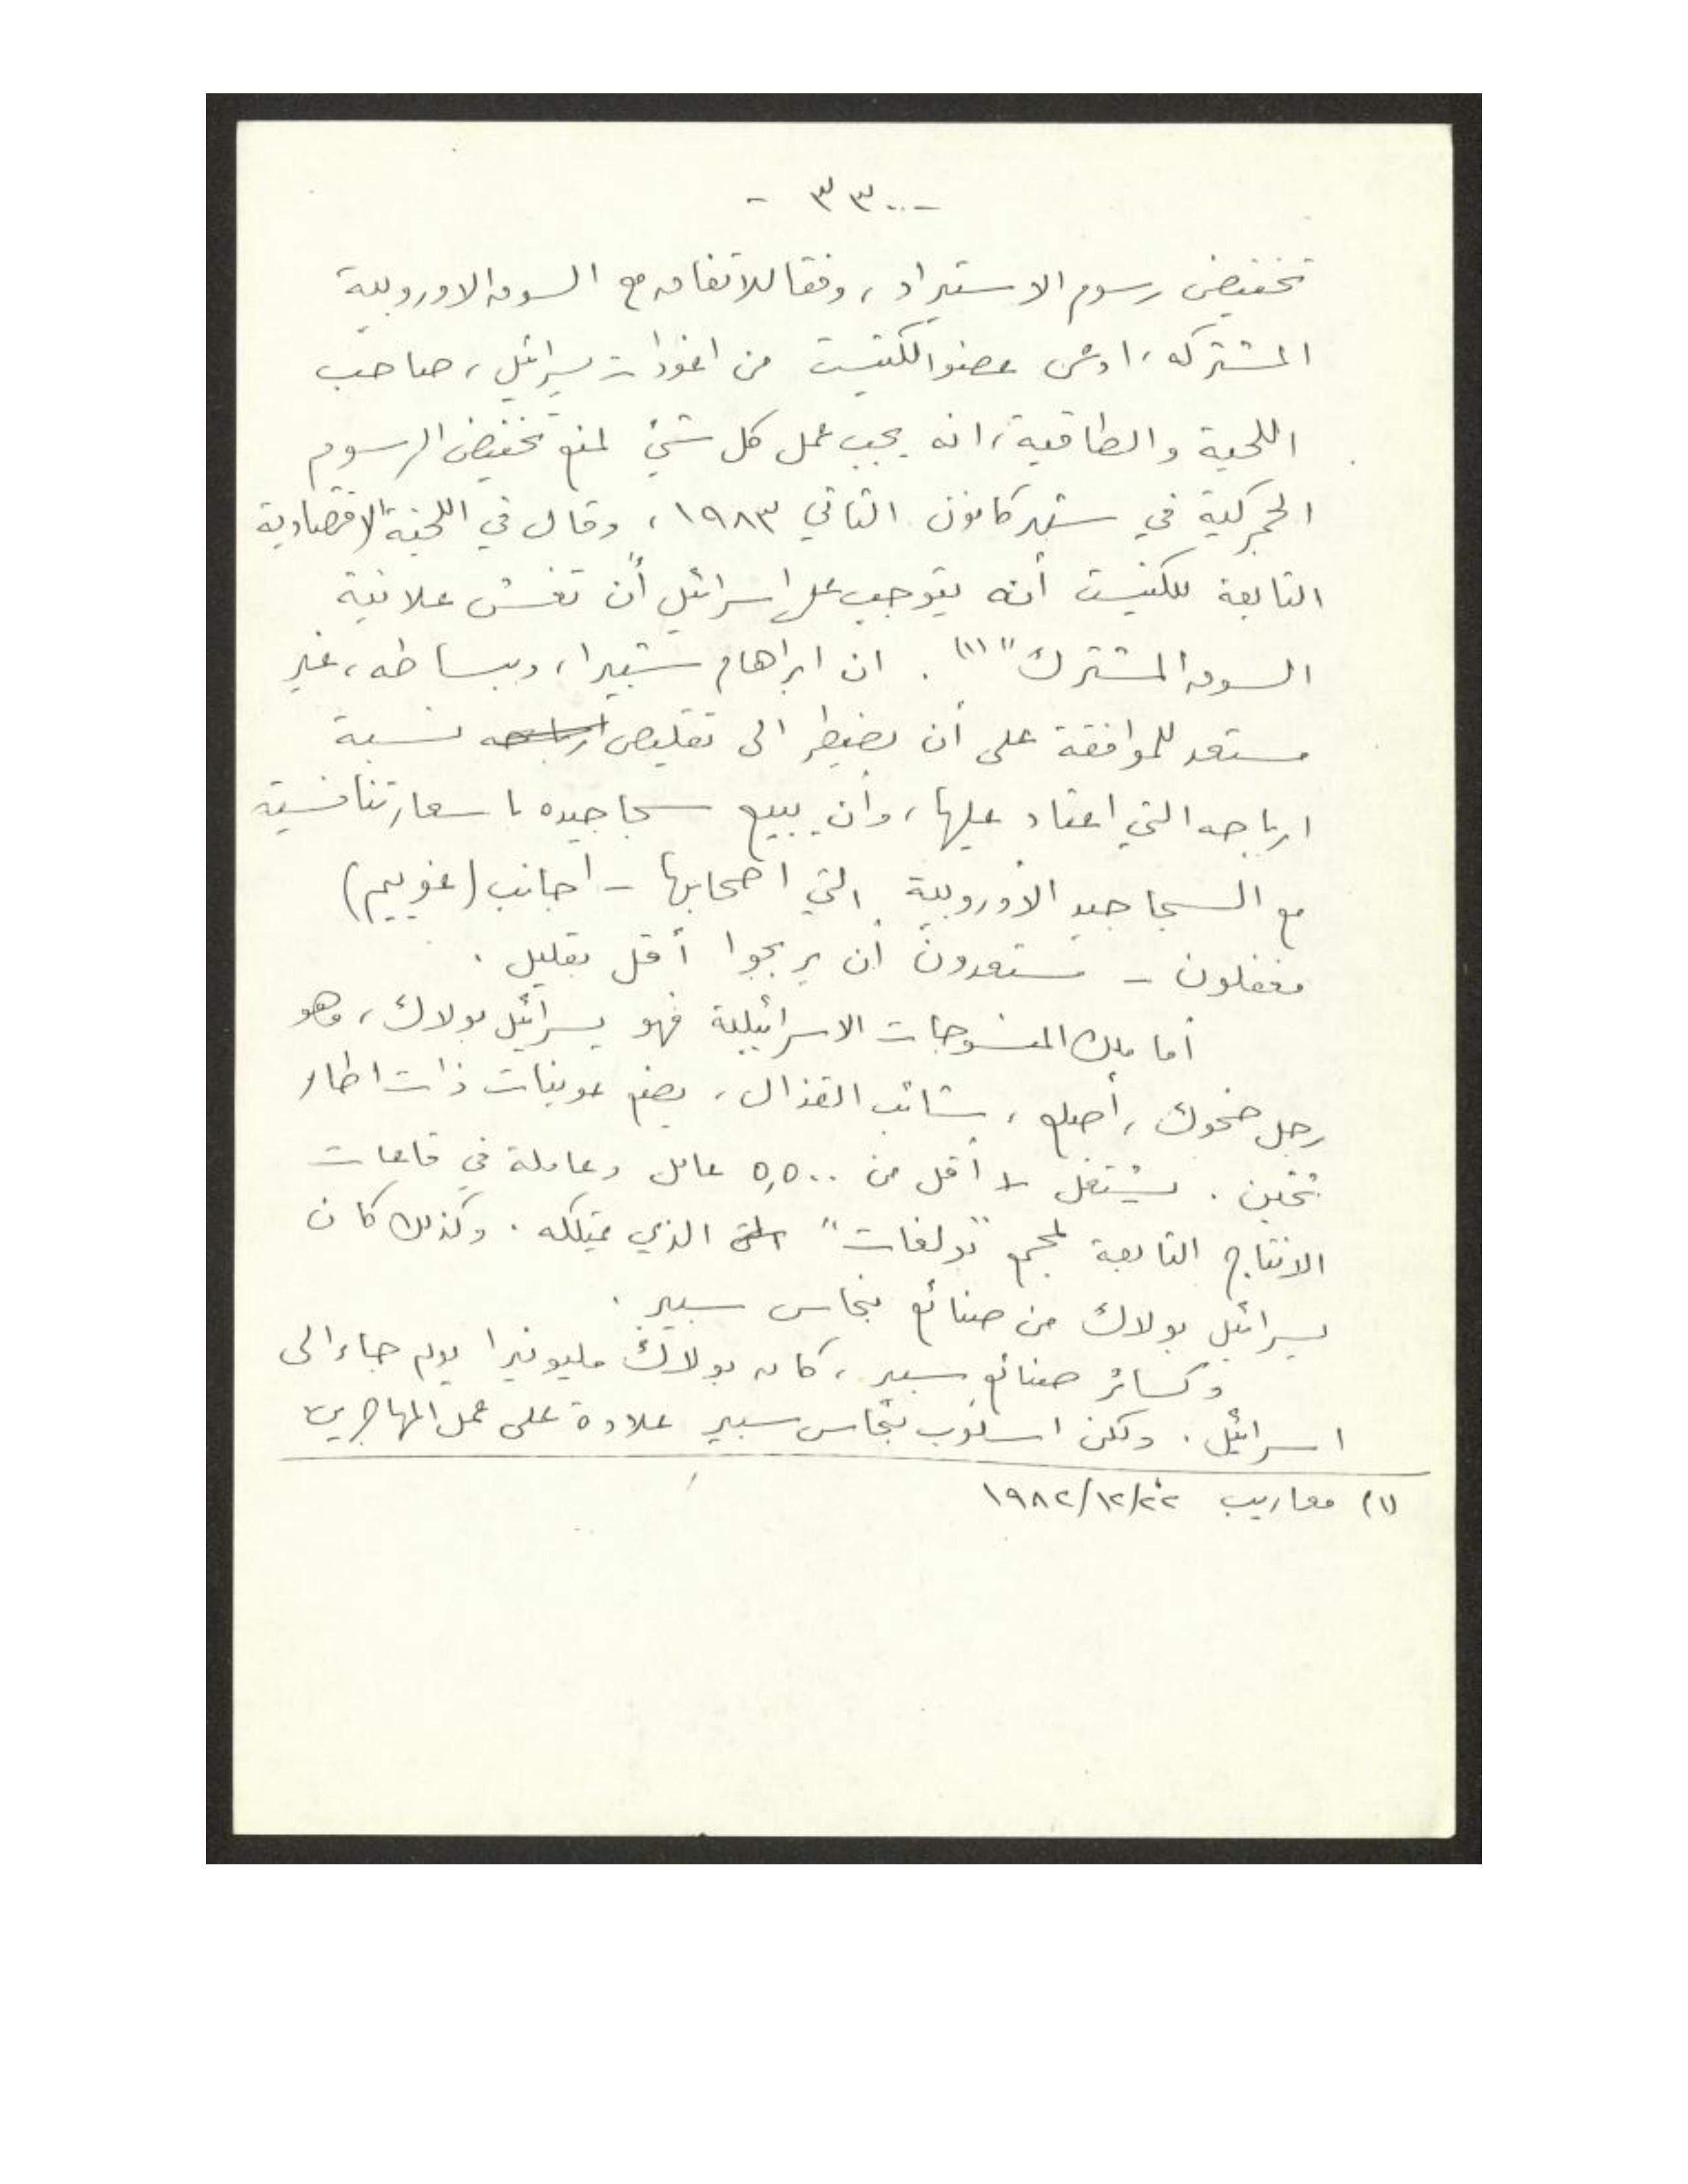 - ٣٣٠٠ -
تخفيض رسوم الاستيراد، وفقا للاتفاق مع السوق الاوروبية
المشتركه، ادعى عضو الكنيست من اغودات يسرائيل، صاحب
اللحية والطاقية، انه يجب عمل كل شيئ لمنع تخفيض الرسوم
الجمركية في شهر كانون الثاني ١٩٨٣، وقال في اللجنة الاقتصادية
التابعة للكنيست أنه يتوجب على اسرائيل أن "تغش علانية
السوق المشترك" (١). ان ابراهام شبيرا، وببساطه، غير
مستعد للموافقة على أن يضطر الى تقليص نسبة
ارباحه التي اعتاد عليها، وأن يبيع سجاجيده باسعار تنافسية
مع السجاجيد الأوروبية التي اصحابها - اجانب (غوييم)
مغفلون - مستعدون أن يربحوا أقل بقليل.
أما ملك المنسوجات الاسرائيلية فهو يسرائيل بولاك، وهو
رجل ضحوك، أصلع، شائب القذال، يضع عوينات ذات اطار
ثخين. يشتغل لا أقل من ٥,٥٠٠ عامل وعاملة في قاعات
الانتاج التابعة لمجمع "بولغات" الذي يمتلكه. وكذلك كان
يسرائيل بولاك من صنائع بنحاس سبير.
وكسائر صنائع سبير، كان بولاك مليونيرا يوم جاء الى
اسرائيل. ولكن اسلوب بنحاس سبير علاوة على عمل المهاجرين
(١) معاريب ١٩٨٢/١٢/٢٢